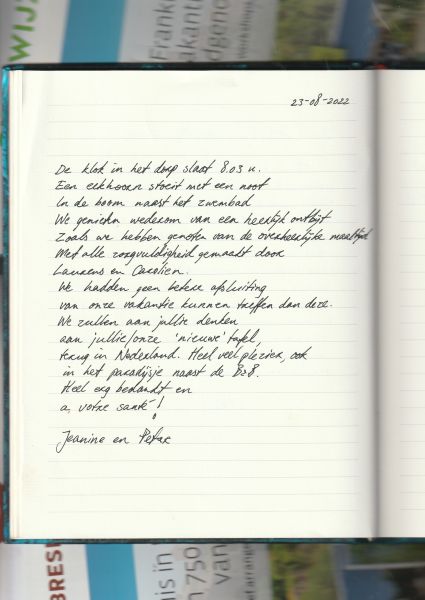 WIJZ
Franke
akantie
dgeno
23-08-2022
De klok in het dorp slaat 8.03 u.
Een eekhoorn stoeit met een noot
In de boom naast het zwembad
We genieten wederom van een heerlijk ontbijt
Zoals we hebben genoten van de overheerlijke maaltijd
Met alle zorgvuldigheid gemaakt door
Laurens en Carolien.
We hadden geen betere afsluiting
van onze vakantie kunnen treffen dan deze.
We zullen aan jullie denken
aan jullie/onze 'nieuwe' tafel,
terug in Nederland. Heel veel plezier, ook
in het paradijsje naast de B&B.
Heel erg bedankt en
a, votre santé!
Jeanine en Petar
BRES
is in
750
van
arrange